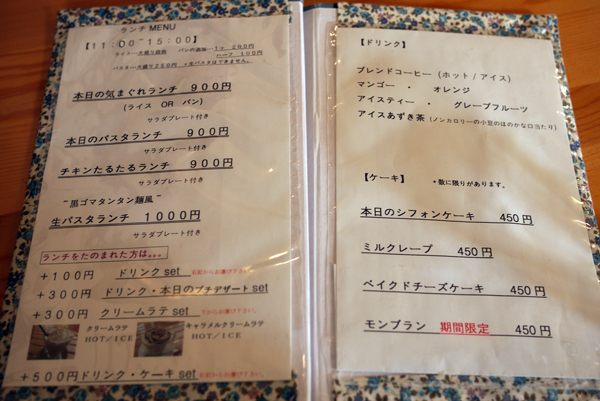 ランチ MENU
【11:00~15:00】
ライス…大盛り無料 パンの追加…1ヶ 200円
ハーフ 100円
パスタ…大盛り250円 *生パスタはできません。
本日の気まぐれランチ 900円
(ライス OR パン)
サラダプレート付き
本日のパスタランチ 900円
サラダプレート付き
チキンたるたるランチ 900円
サラダプレート付き
~黒ゴマタンタン麺風~
生パスタランチ 1000円
サラダプレート付き
ランチをたのまれた方は。。。
+100円 ドリンク set 右記からお選び下さい。
+300円 ドリンク・本日のプチデザート set
+300円 クリームラテ set 下からお選び下さい。
クリームラテ
HOT/ICE
キャラメルクリームラテ
HOT/ICE
+500円 ドリンク・ケーキ set 右記からお選び下さい。
【ドリンク】
ブレンドコーヒー (ホット / アイス)
マンゴー ・ オレンジ
アイスティー ・ グレープフルーツ
アイスあずき茶 (ノンカロリーの小豆のほのかな口当たり)
【ケーキ】 *数に限りがあります。
本日のシフォンケーキ 450円
ミルクレープ 450円
ベイクドチーズケーキ 450円
モンブラン 期間限定 450円